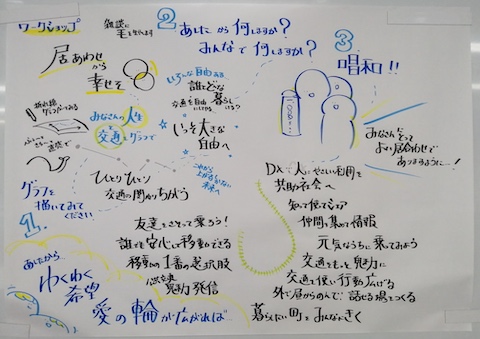 ワークショップ
雑談に
毛を生やします
居あわせ
から
幸せを
折れ線
みなさんの人生
と
交通をグラフで
グラフを
描いてみて
ください
ひとりひとり
交通の関わりちがう
1.
あしたから…
わくわく
希望
愛の輪が広がれば…
2
あしたから何しますか?
みんなで何しますか?
いろんな自由ある
誰とどな
交通を自由に
暮らし
もっと大きな
自由へ
これから
未来へ
友達とさそって乗ろう!
誰でも安心して移動できる
移動の1番の選択肢
公共交通
魅力発信
3.
唱和!!
みなさんにとって
よりよい居合わせで
ありますように…!
DXで人にやさしい利用を
共助社会へ
知って使ってシェア
仲間を集めて情報
元気なうちに乗ってみよう
交通をもっと魅力に
交通を使い行動広げる
話せる場をつくる
暮らしたい町をみんなできく